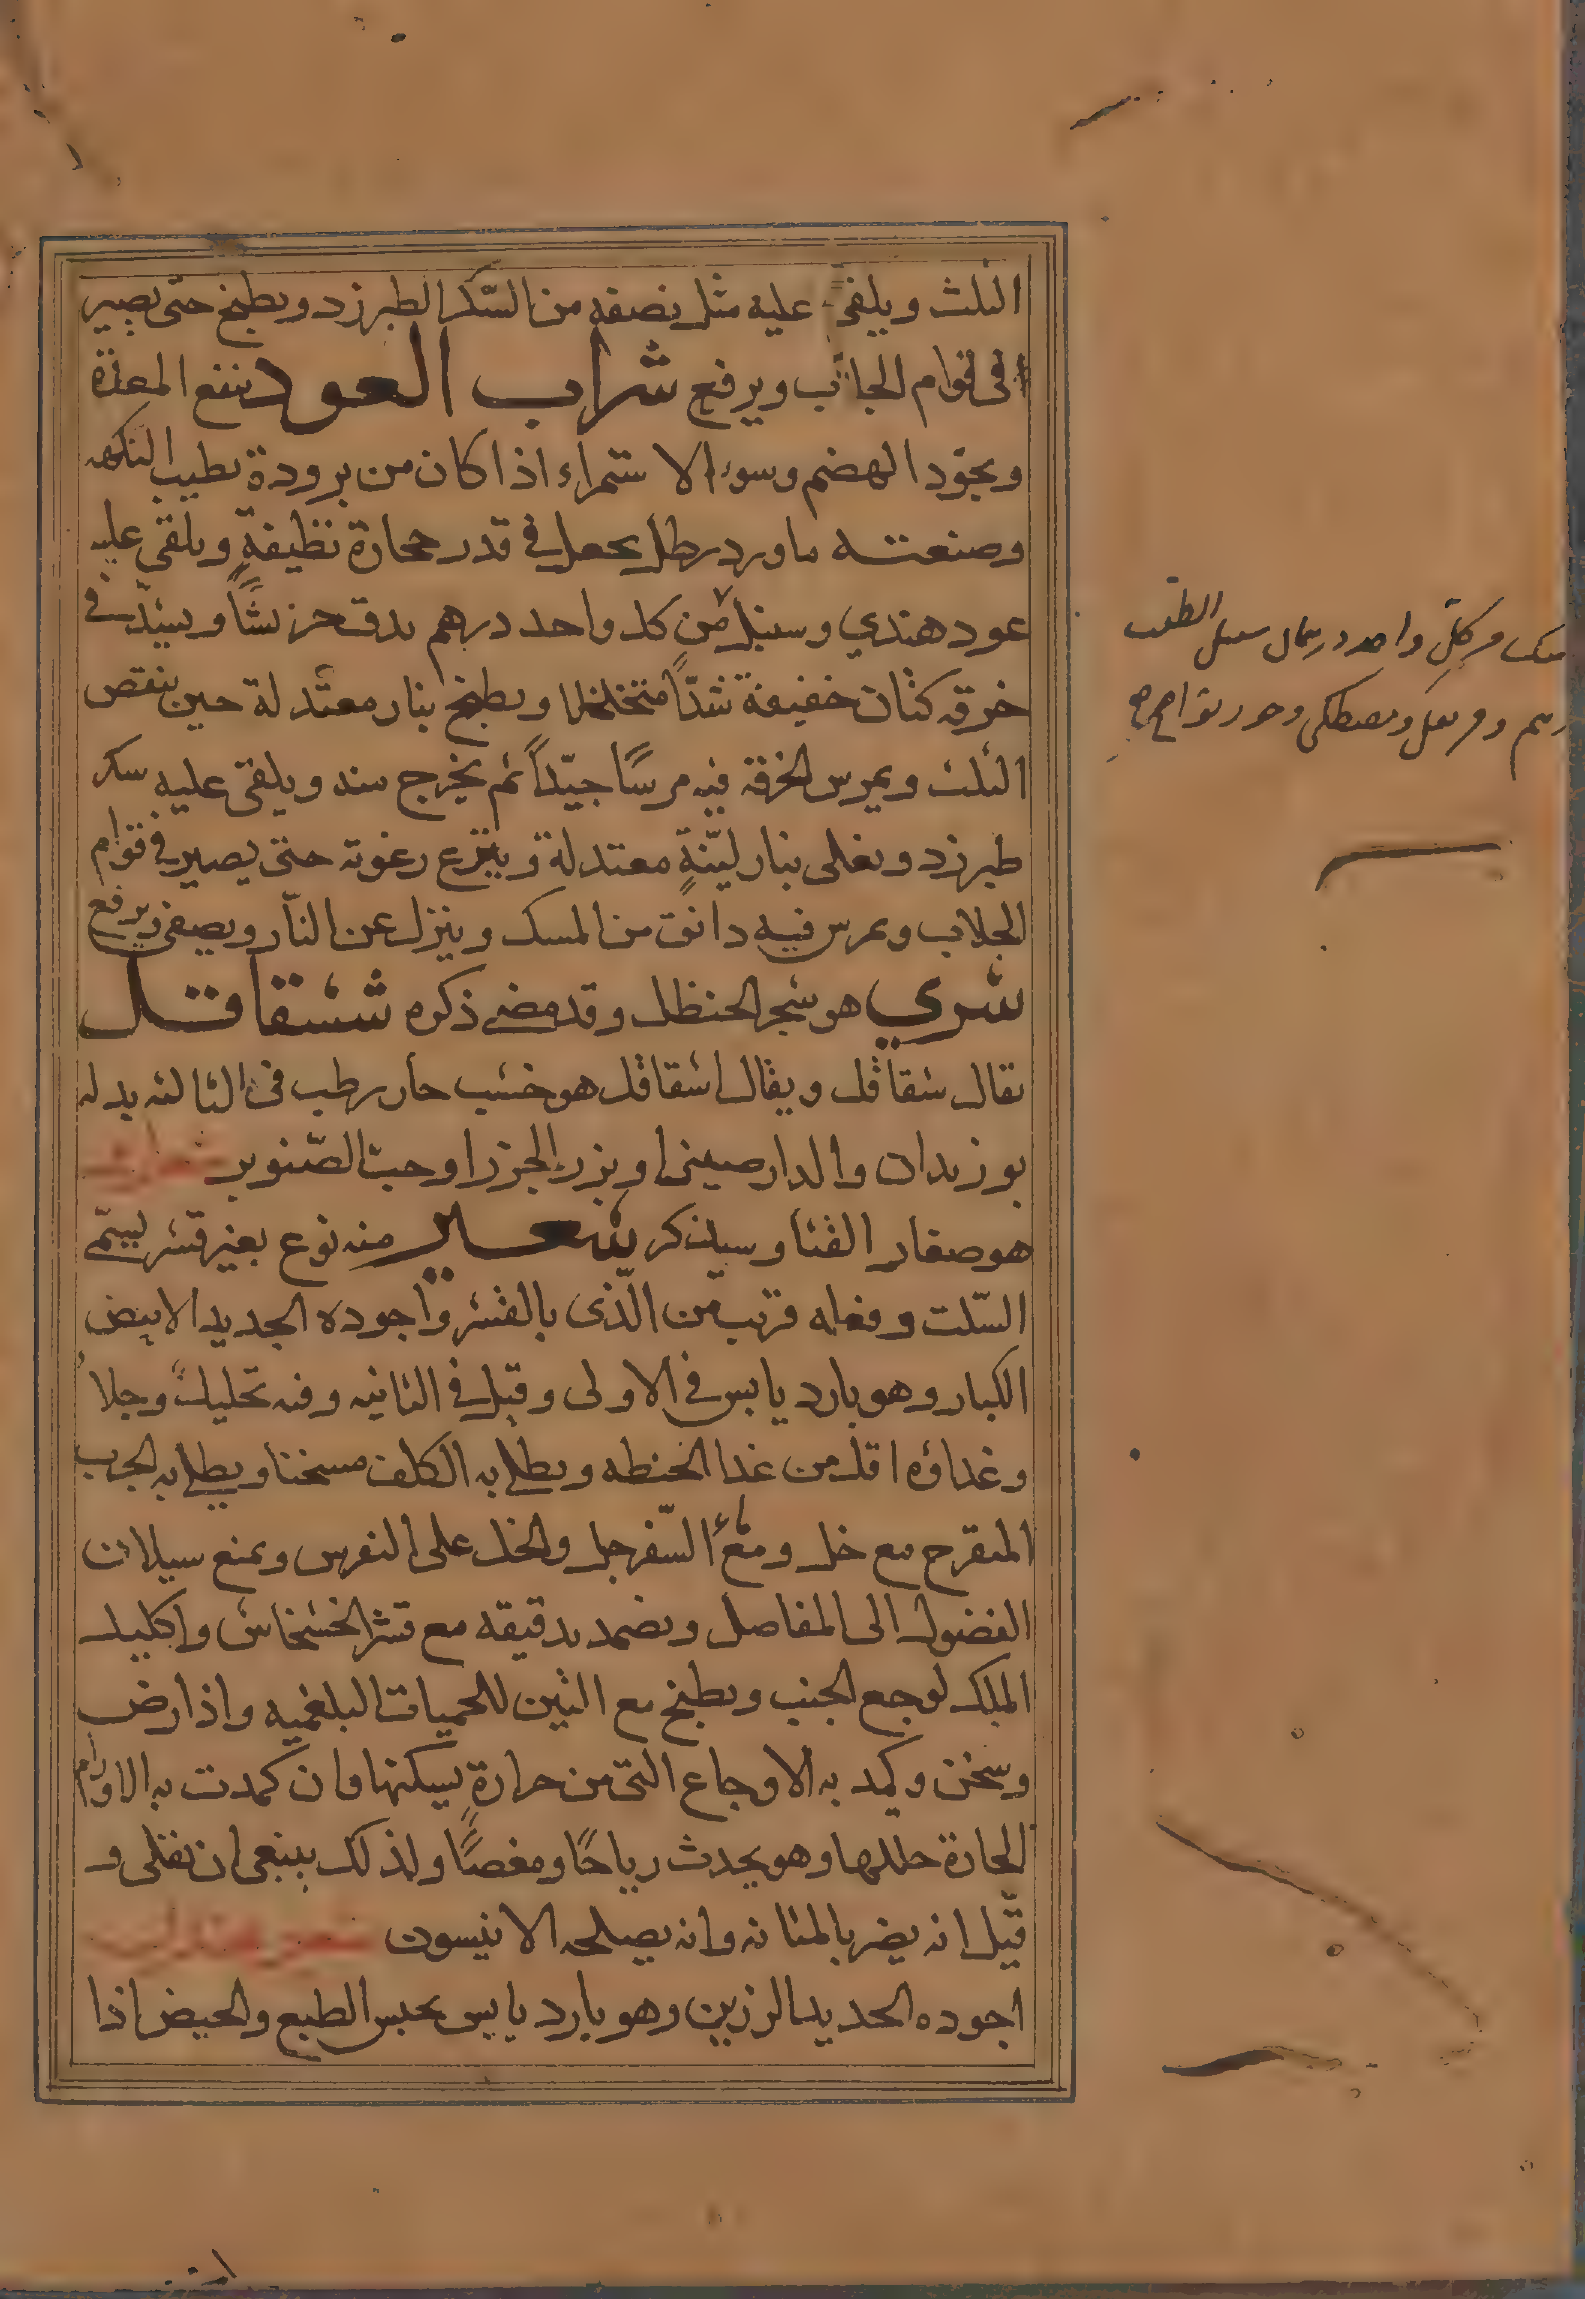 الثلث ويلقى عليه مثل نصفه من السّكر الطبرزد ويطبخ حتى يصير
فى قوام الجلاب ويرفع شراب العود ينفع المعدة
ويجوّد الهضم وسوء الاستمراء اذا كان من برودة يطيب النكهه
وصنعته ماورد رطل يجعل في قدر حجارة نظيفةٍ ويلقى عليه
عود هندي وسنبل من كل واحد درهم يدق جريشاً ويشدّ في
خرقه كتان خفيفة شدّاً متخلخلا ويطبخ بنار معتدلة حين ينقص
الثلث ويمرس الخرقه فيه مرساً جيّداً ثم يخرج منه ويلقى عليه سكر
طبرزد ويغلى بنار ليّنةٍ معتدلة وينزع رغوته حتى يصير في قوام
الجلاب ويمرس فيه دانق من المسك وينزل عن النّار ويصفى ويرفع
شري هو شجر الحنظل وقد مضى ذكره ششقاقل
يقال شقاقل ويقال اشقاقل هو خشب حار رطب فى الثالثه بدله
بوزيدان والدارصينى او بزر الجزر او حبّ الصّنوبر
هو صغار القثا وسيذكر شعير منه نوع بغير قشر يسمّى
السّلت وفعله قريب من الّذى بالقشر واجوده الجديد الابيض
الكبار وهو بارد يابس في الاولى وقيل في الثانيه وفيه تحليل وجلاء
وغذاؤه اقل من غذا الحنطه ويطلا به الكلف مسخنا ويطلا به الجرب
المتقرح مع خل ومع السّفرجل والخل على النقرس ويمنع سيلان
الفضول الى المفاصل ويضمد بدقيقه مع قشر الخشخاش واكليل
الملك لوجع الجنب ويطبخ مع التين للحميات البلغميه واذا رض
وسخن وكمد به الاوجاع التى من حرارةٍ يسكنها وان كمدت به الاورام
الحارة حللها وهو يحدث رياحًا ومغصًا ولذلك ينبغى ان يغلى و
قيل انه يضر بالمثانه وانه يصلحه الانيسون
اجوده الحديد الرزين وهو بارد يابس يحبس الطبع والحيض اذا
مسك من كلّ واحد درهمان سنبل الطيب
وقرنفل ومصطكى وجوز بوا